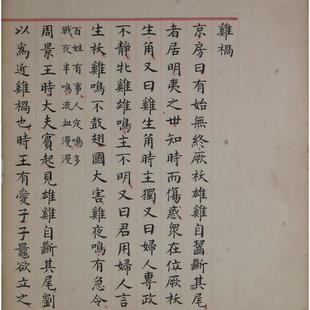 雞禍
京房曰有始無終厥妖雄雞自齧斷其尾
者居明夷之世知時而傷感衆在位厥妖
生角又曰雞生角時主獨又曰婦人專政
不靜牝雞雄鳴主不明又曰君用婦人言
生妖雞鳴不鼓翅國大害雞夜鳴有急令
百姓有事人定鳴多
戰夜半鳴流血漫漫
周景王時大夫賓起見雄雞自斷其尾劉
以爲近雞禍也時王有愛子子鼂欲立之